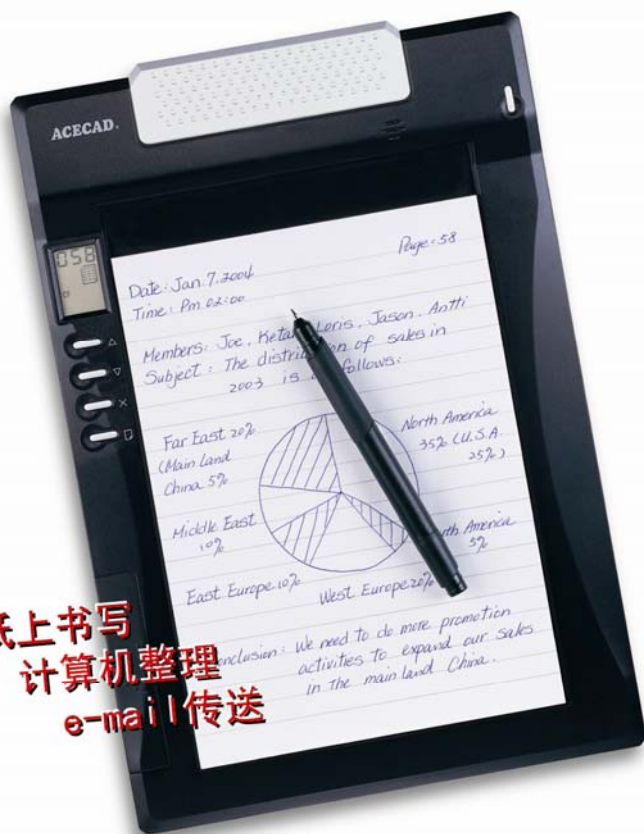 ACECAD.
058
Page: 58
Date: Jan. 7. 2004
Time: Pm 02:00
Members: Joe, Loris, Jason, Antti
Subject: The of sales in
2003 is follows:
Far East 20%
(Main land
China 5%
North America
35% (U.S.A.
25%)
Middle East
10%
America
5%
East Europe 10%
West Europe 20%
Conclusion: We need to do more promotion
activities to expand our sales
in the main land China.
纸上书写
计算机整理
e-mail传送